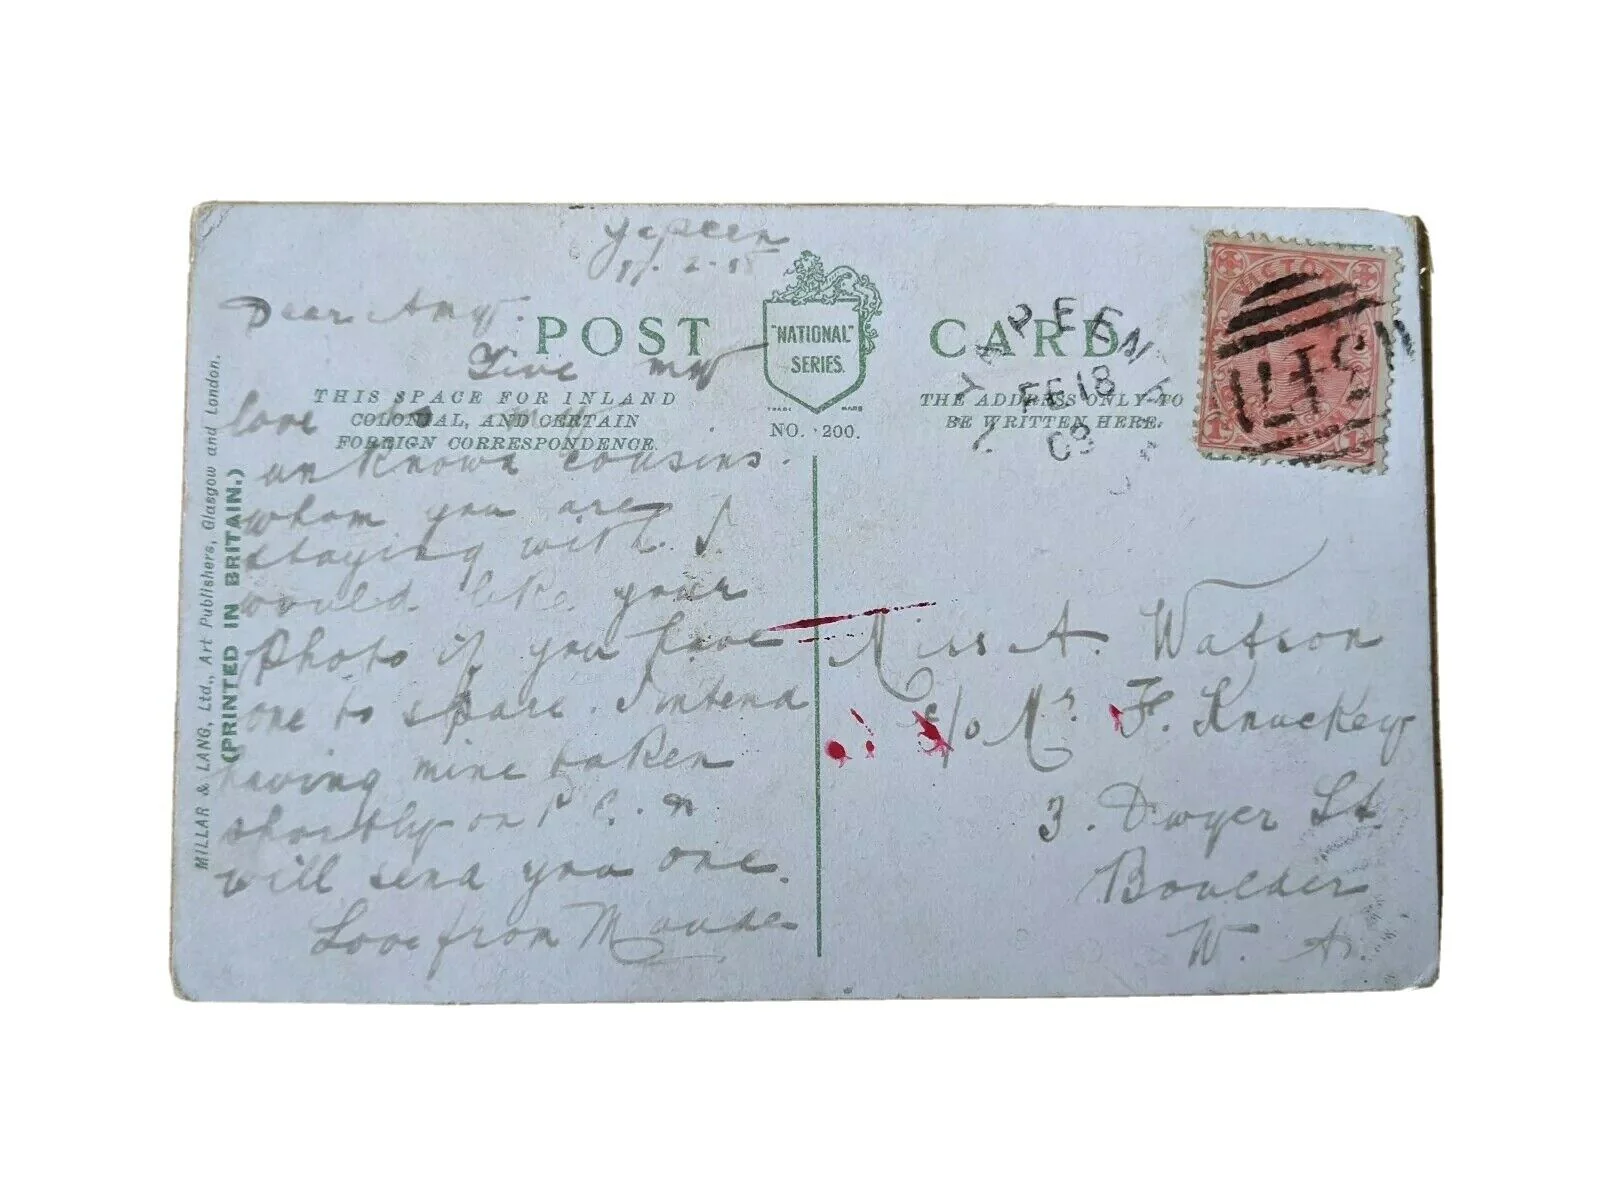 Yapeen
17. 2. 08
Dear Amy.
Give my
love to my
unknown cousins.
whom you are
staying with. I
would like your
Photo if you have
one to spare. I intend
having mine taken
shortly on P.C. &
will send you one.
Love from Maude
POST CARD
"NATIONAL"
SERIES.
TRADE MARK
NO. 200.
THIS SPACE FOR INLAND
COLONIAL, AND CERTAIN
FOREIGN CORRESPONDENCE.
THE ADDRESS ONLY TO
BE WRITTEN HERE.
MILLAR & LANG, Ltd., Art Publishers, Glasgow and London.
(PRINTED IN BRITAIN.)
YAPEEN
FE 18
08
VICTO
1D
Miss A. Watson
c/o Mr. F. Knuckey
3. Dwyer St
Boulder
W. A.